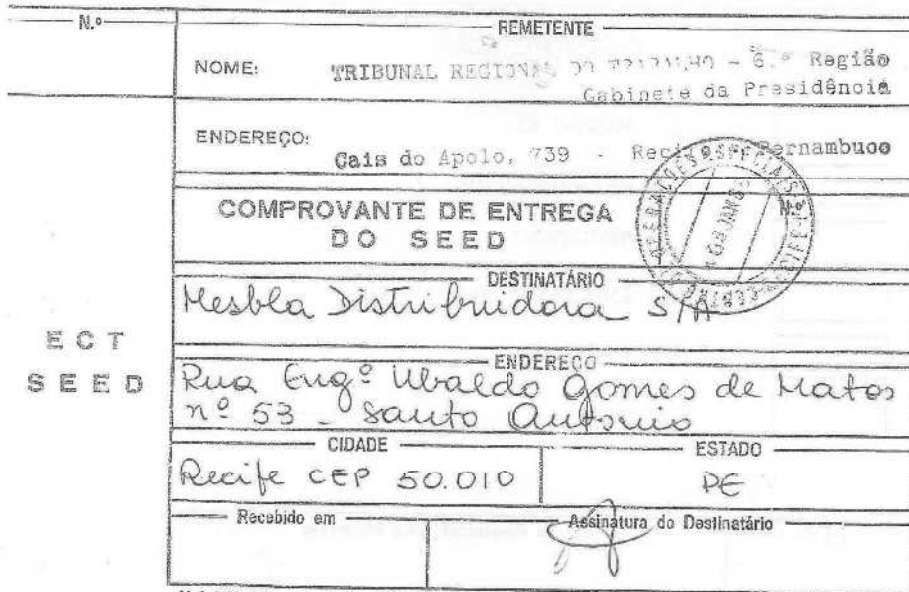 N.º
REMETENTE
NOME: TRIBUNAL REGIONAL DO TRABALHO - 6.ª Região
Gabinete da Presidência
ENDEREÇO:
Cais do Apolo, 739 - Recife Pernambuco
COMPROVANTE DE ENTREGA
DO SEED
N.º
DESTINATÁRIO
Mesbla Distribuidora S/A
ECT
SEED
ENDEREÇO
Rua Engº Ubaldo Gomes de Matos
nº 53 - Santo Antonio
CIDADE
Recife CEP 50.010
ESTADO
PE
Recebido em
Assinatura do Destinatário